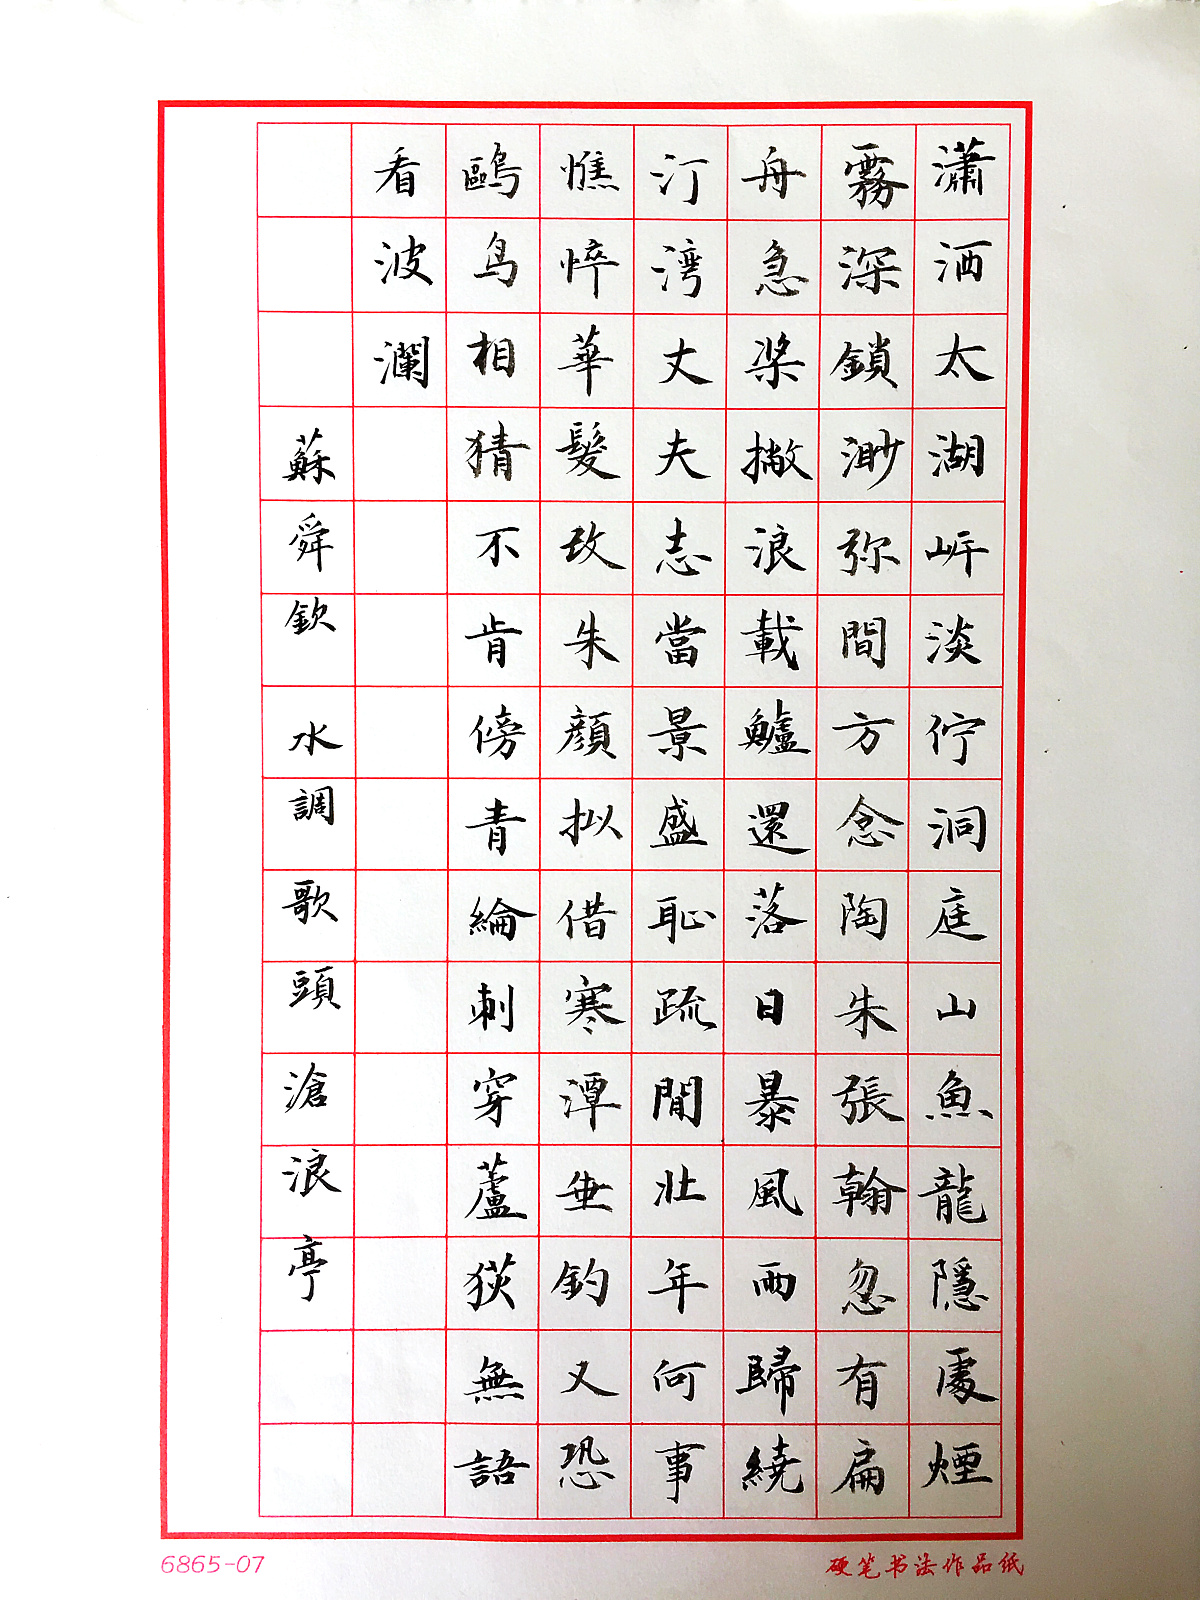 瀟洒太湖岍淡佇洞庭山魚龍隱處煙
霧深鎖渺弥間方念陶朱張翰忽有扁
舟急槳撇浪載鱸還落日暴風雨歸繞
汀湾丈夫志當景盛恥疏閒壯年何事
憔悴華髮攺朱顏拟借寒潭垂釣又恐
鷗鸟相猜不肯傍青綸刺穿蘆荻無語
看波瀾
蘇舜欽 水調歌頭 滄浪亭
6865-07
硬笔书法作品纸